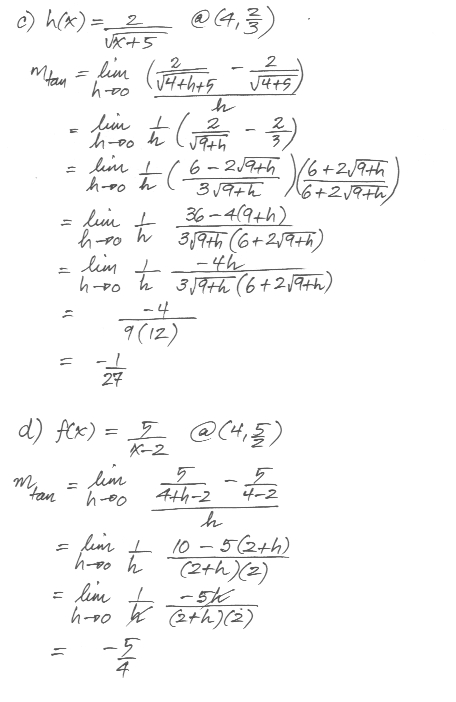 c) h(x) = 2/√(x+5) @ (4, 2/3)
m_tan = lim_{h→0} (2/√(4+h+5) − 2/√(4+5))/h
= lim_{h→0} 1/h (2/√(9+h) − 2/3)
= lim_{h→0} 1/h ((6 − 2√(9+h))/(3√(9+h))) ((6 + 2√(9+h))/(6 + 2√(9+h)))
= lim_{h→0} 1/h (36 − 4(9+h))/(3√(9+h) (6 + 2√(9+h)))
= lim_{h→0} 1/h (−4h)/(3√(9+h) (6 + 2√(9+h)))
= −4/(9(12))
= −1/27
d) f(x) = 5/(x−2) @ (4, 5/2)
m_tan = lim_{h→0} (5/(4+h−2) − 5/(4−2))/h
= lim_{h→0} 1/h (10 − 5(2+h))/((2+h)(2))
= lim_{h→0} 1/h (−5h)/((2+h)(2))
= −5/4